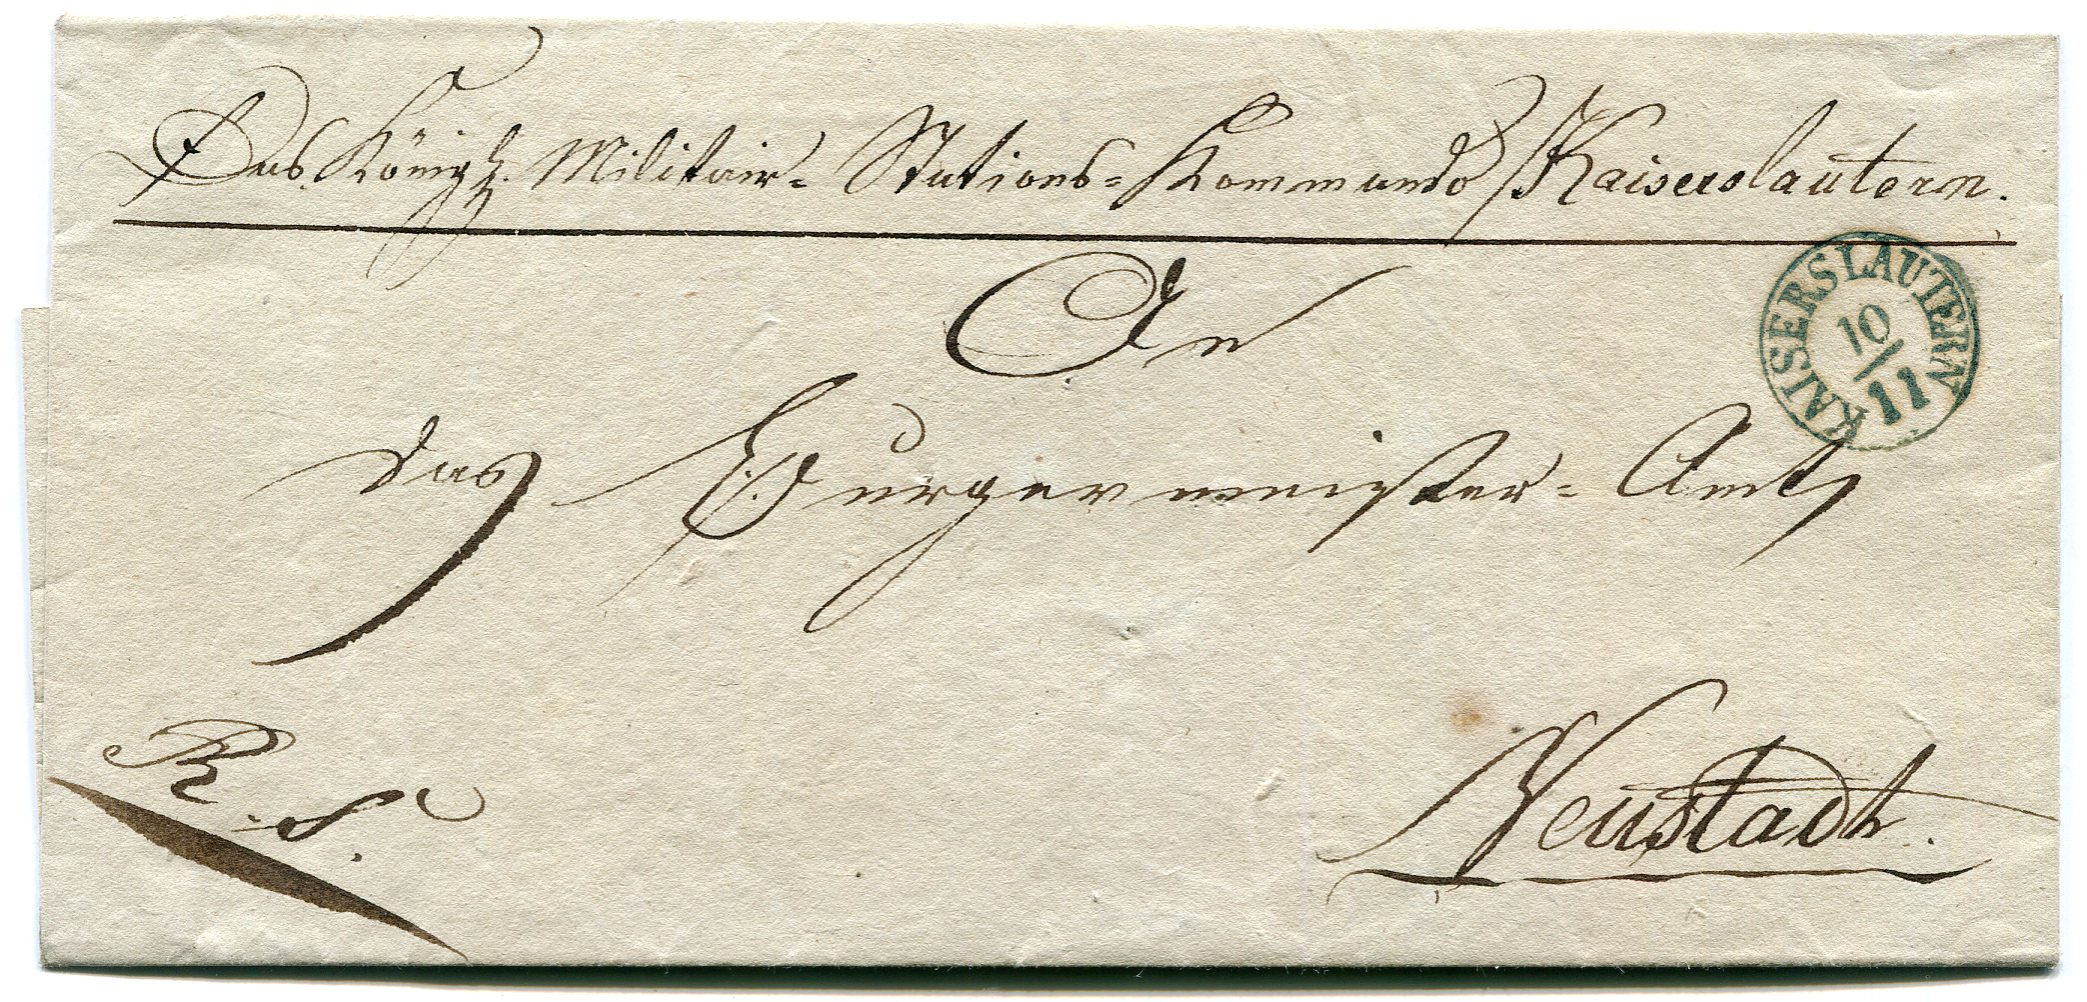 Das Königl. Militair-Stations-Kommando Kaiserslautern.
An
das Burgermeister-Amt
KAISERSLAUTERN
10/11
R. S.
Neustadt.